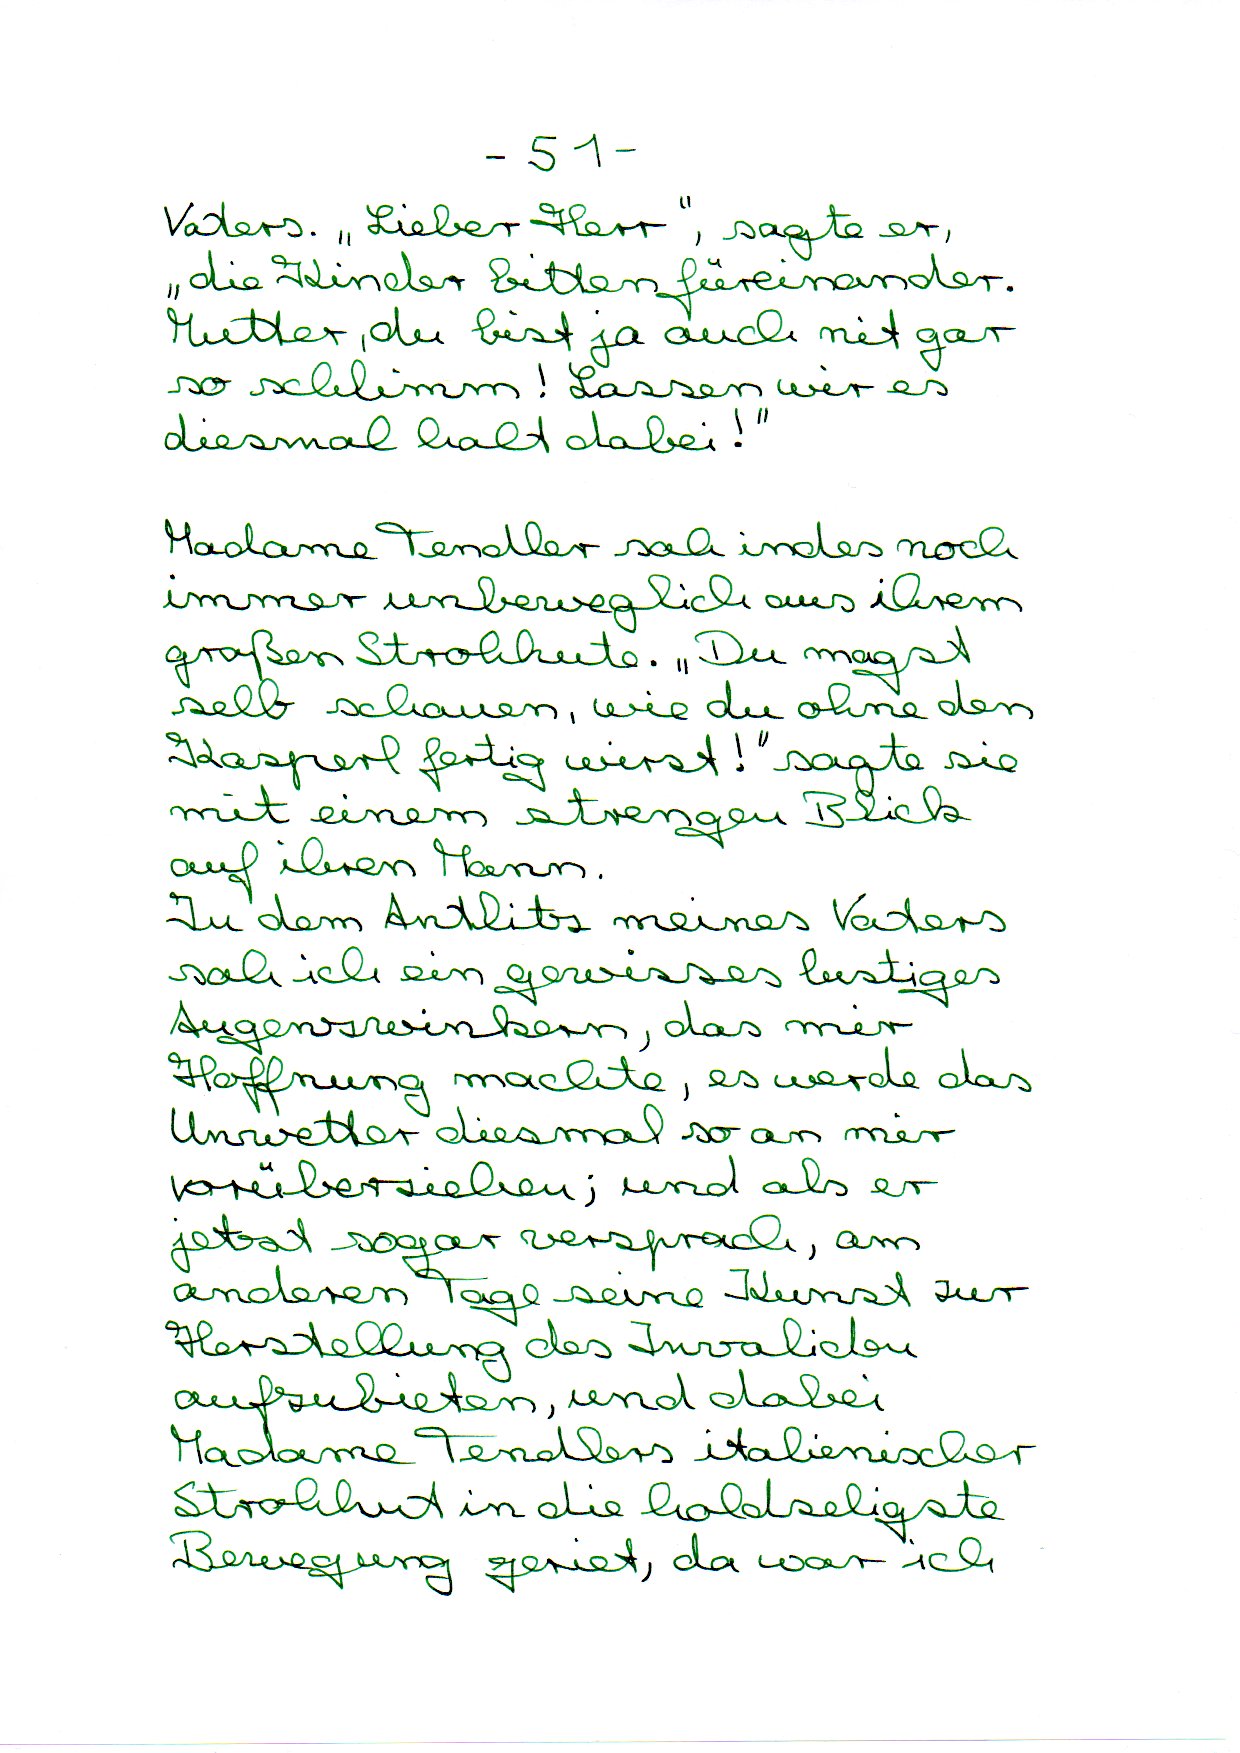 - 51 -
Vaters. „Lieber Herr", sagte er,
„die Kinder bitten füreinander.
Mutter, du bist ja auch nit gar
so schlimm! Lassen wir es
diesmal halt dabei!"
Madame Tendler sah indes noch
immer unbeweglich aus ihrem
großen Strohhute. „Du magst
selb schauen, wie du ohne den
Kasperl fertig wirst!" sagte sie
mit einem strengen Blick
auf ihren Mann.
In dem Antlitz meines Vaters
sah ich ein gewisses lustiges
Augenzwinkern, das mir
Hoffnung machte, es werde das
Unwetter diesmal so an mir
vorüberziehen; und als er
jetzt sogar versprach, am
anderen Tage seine Kunst zur
Herstellung des Invaliden
aufzubieten, und dabei
Madame Tendlers italienischer
Strohhut in die holdseligste
Bewegung geriet, da war ich